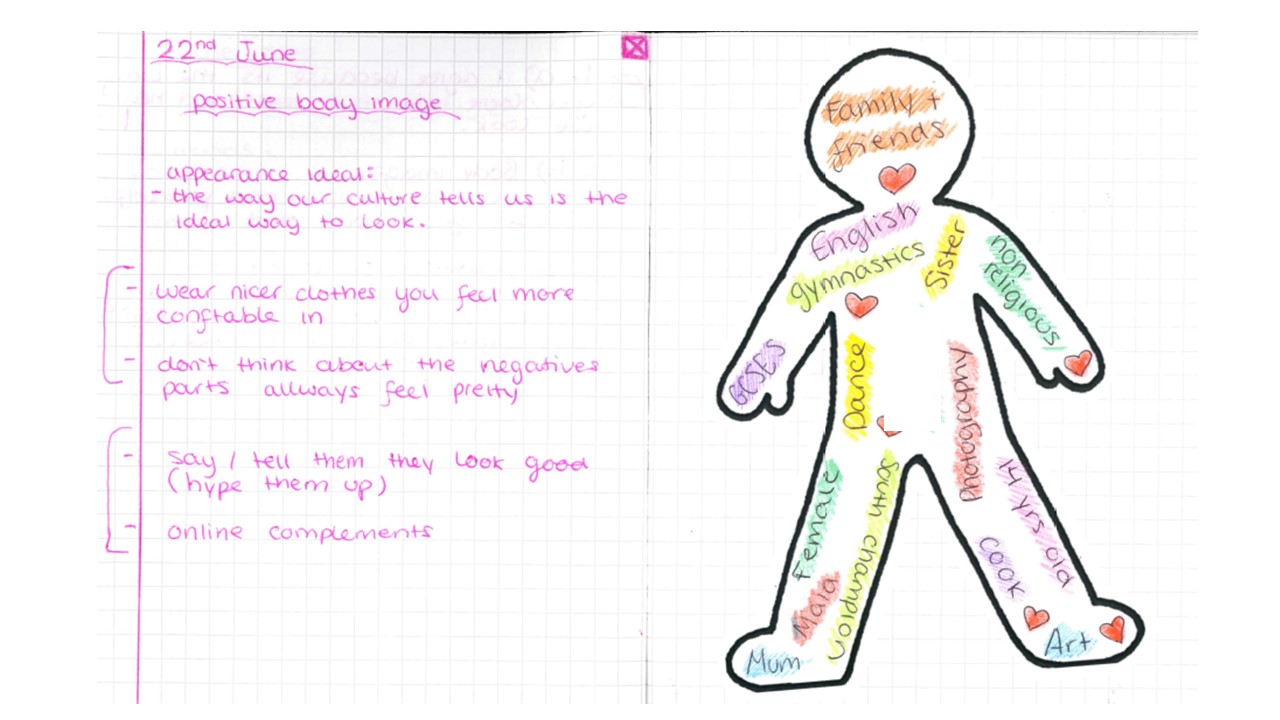 22nd June
positive body image
appearance ideal:
- the way our culture tells us is the
ideal way to look.
- wear nicer clothes you feel more
conftable in
- don't think about the negatives
parts allways feel pretty
- say / tell them they look good
(hype them up)
- online complements
Family +
friends
English
gymnastics
Sister
non
religious
GCSES
Dance
Photography
Female
South champion
14 yrs old
Cook
Maia
Mum
Art